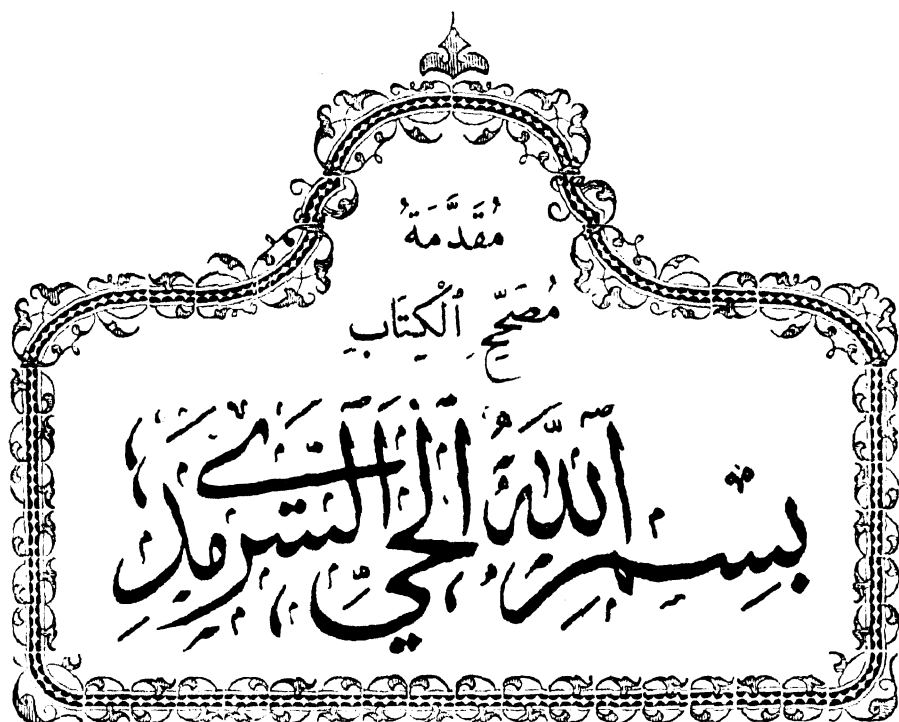 مُقَدَّمَةُ
مُصَحِّحِ ٱلْكِتَابِ
بِسْمِ ٱللّٰهِ ٱلْحَيِّ ٱلسَّرْمَدِيِّ